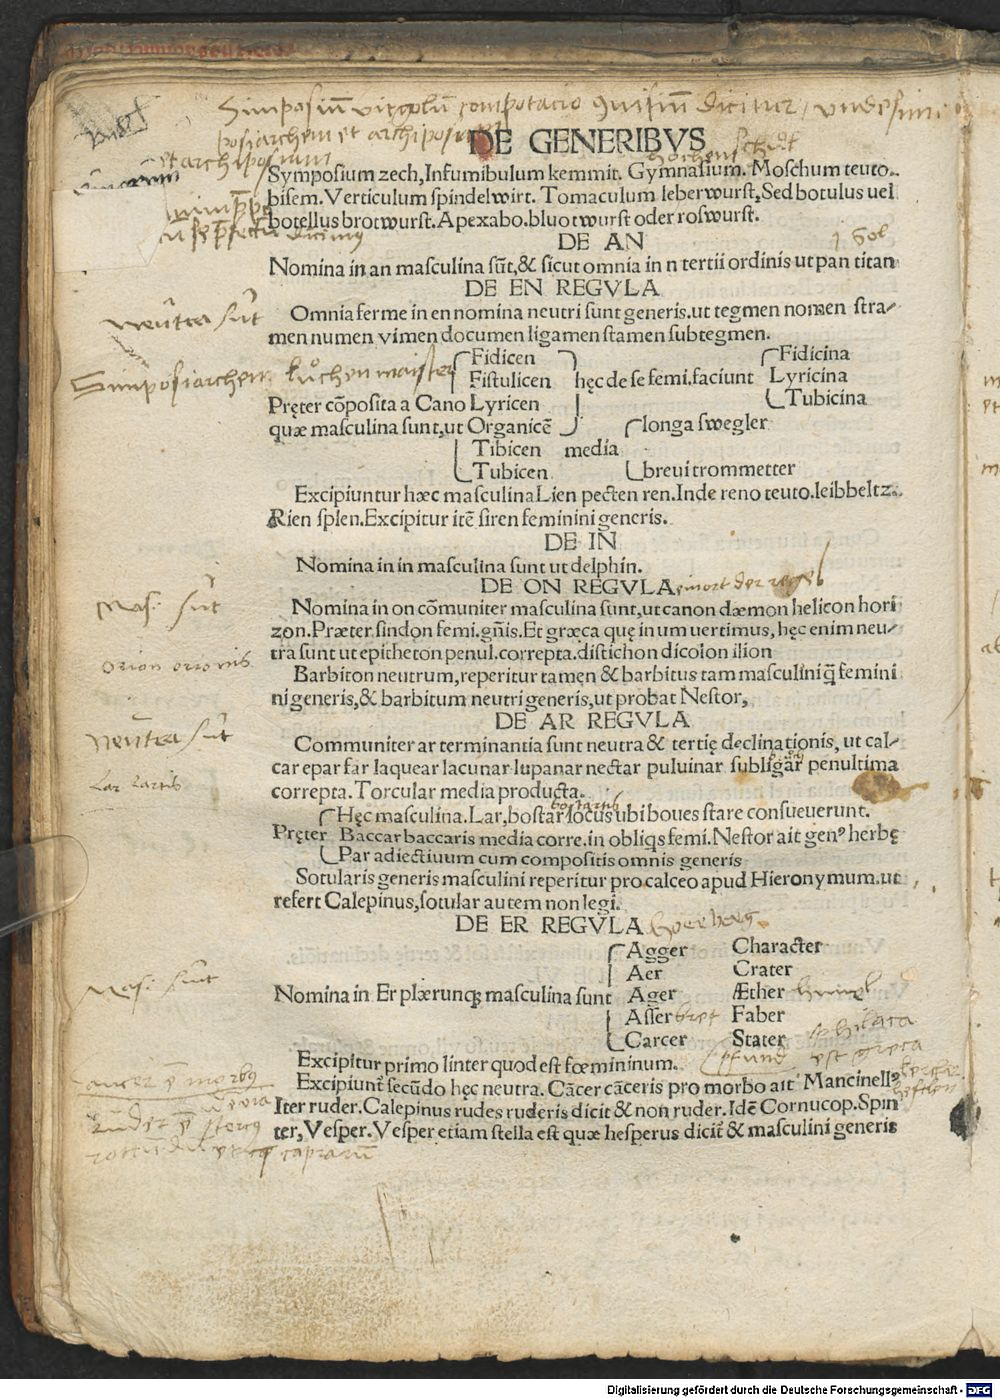 Simposiū
DE GENERIBVS
Symposium zech,Infumibulum kemmit. Gymnasium. Moschum teuto.
bisem.Verticulum spindelwirt. Tomaculum leberwurst,Sed botulus uel
botellus brotwurst.Apexabo.bluotwurst oder roswurst.
DE AN
Nomina in an masculina sūt,& sicut omnia in n tertii ordinis ut pan titan
DE EN REGVLA
Omnia ferme in en nomina neutri sunt generis.ut tegmen nomen stra/
neutra sūt
men numen vimen documen ligamen stamen subtegmen.
Fidicen Fidicina
Simposiarchen
Fistulicen hęc de se femi.faciunt Lyricina
Pręter cōposita a Cano Lyricen Tubicina
quæ masculina sunt,ut Organicē longa swegler
Tibicen media
Tubicen breui trommetter
Excipiuntur hæc masculina Lien pecten ren.Inde reno teuto.leibbeltz.
Rien splen.Excipitur itē siren feminini generis.
DE IN
Nomina in in masculina sunt ut delphin.
DE ON REGVLA
Mas. sūt
Nomina in on cōmuniter masculina sunt,ut canon dæmon helicon hori
zon.Præter sindon femi.gn̄is.Et græca quę in um uertimus,hęc enim neu/
tra sunt ut epitheton penul.correpta.distichon dicolon ilion
orion orionis
Barbiton neutrum,reperitur tamen & barbitus tam masculini q̄ femini
ni generis,& barbitum neutri generis,ut probat Nestor,
DE AR REGVLA
neutra sūt
Communiter ar terminantia sunt neutra & tertię declinationis, ut cal/
car epar far laquear lacunar lupanar nectar puluinar subligar penultima
Lar Laris
correpta. Torcular media producta.
Hęc masculina.Lar,bostar locus ubi boues stare consueuerunt.
Pręter Baccar baccaris media corre.in obliqs femi.Nestor ait genꝰ herbę
Par adiectiuum cum compositis omnis generis
Sotularis generis masculini reperitur pro calceo apud Hieronymum.ut
refert Calepinus,sotular autem non legi.
DE ER REGVLA
Agger Character
Aer Crater
Mas. sunt
Nomina in Er plærunqꝫ masculina sunt Ager Æther himel
Asser bret Faber
Carcer Stater
Excipitur primo linter quod est fœmininum.
Excipiunt̄ secūdo hęc neutra. Cācer cāceris pro morbo ait Mancinellꝰ
Iter ruder.Calepinus rudes ruderis dicit & non ruder.Idē Cornucop.Spin
ter,Vesper.Vesper etiam stella est quæ hesperus dicit̄ & masculini generis
Digitalisierung gefördert durch die Deutsche Forschungsgemeinschaft - DFG